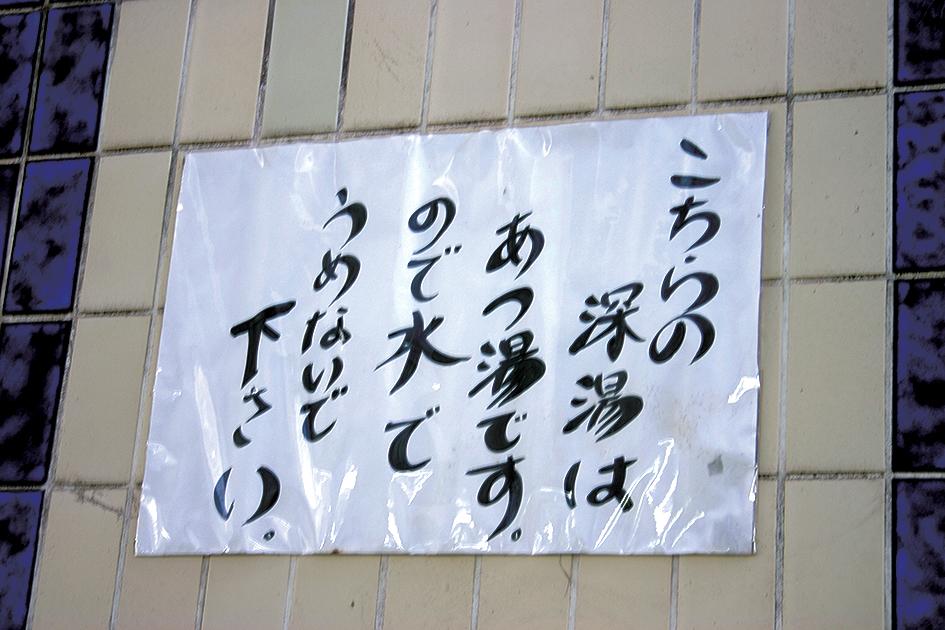 こちらの
深湯は
あつ湯です。
ので水で
うめないで
下さい。